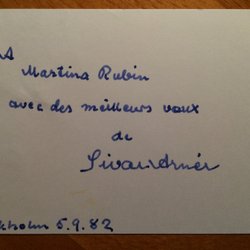 A
Martina Rubin
avec des meilleurs vœux
de
Sivar Arnér
kholm 5.9.82